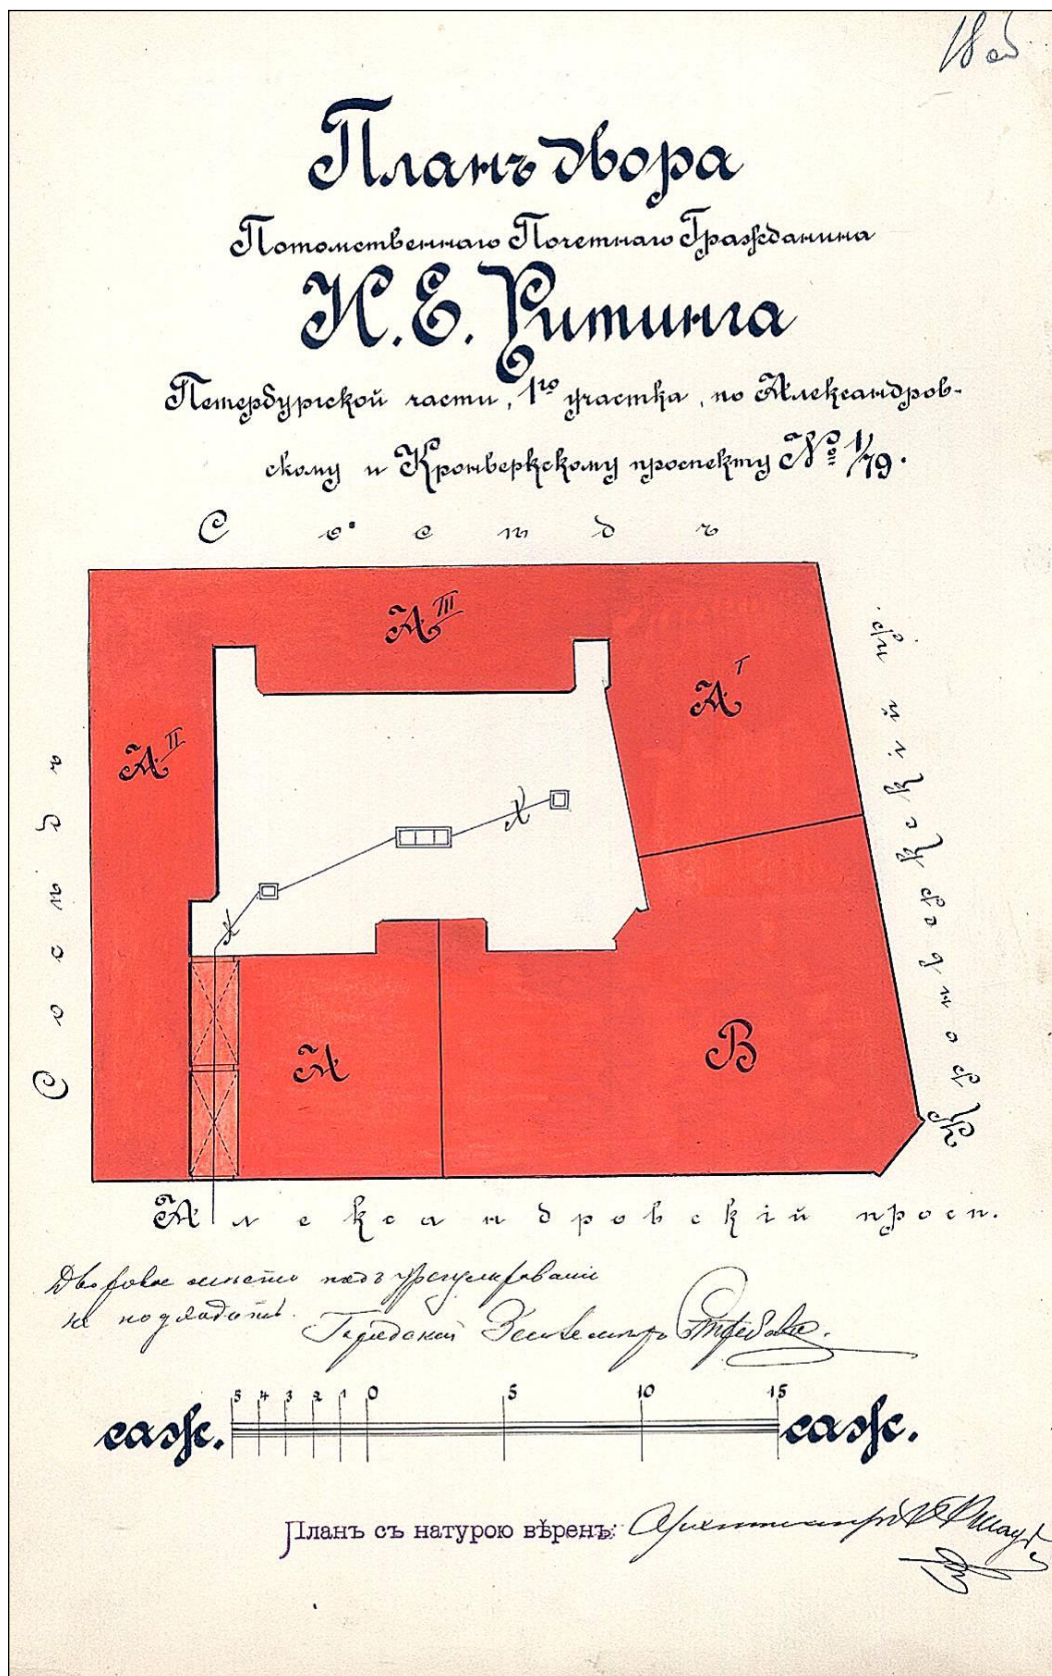 18 об
Планъ двора
Потомственнаго Почетнаго Гражданина
Н. Е. Ритинга
Петербургской части, 1го участка, по Александров-
скому и Кронверкскому проспекту № 1/79.
Сосѣдъ
А III
А I
А II
Сосѣдъ
Кронверкскій пр.
А
В
Александровскій просп.
Дворовое мѣсто подъ урегулированіе
не подходитъ.
Городской Землемѣръ
саж. 5 4 3 2 1 0 5 10 15 саж.
Планъ съ натурою вѣренъ: Архитекторъ